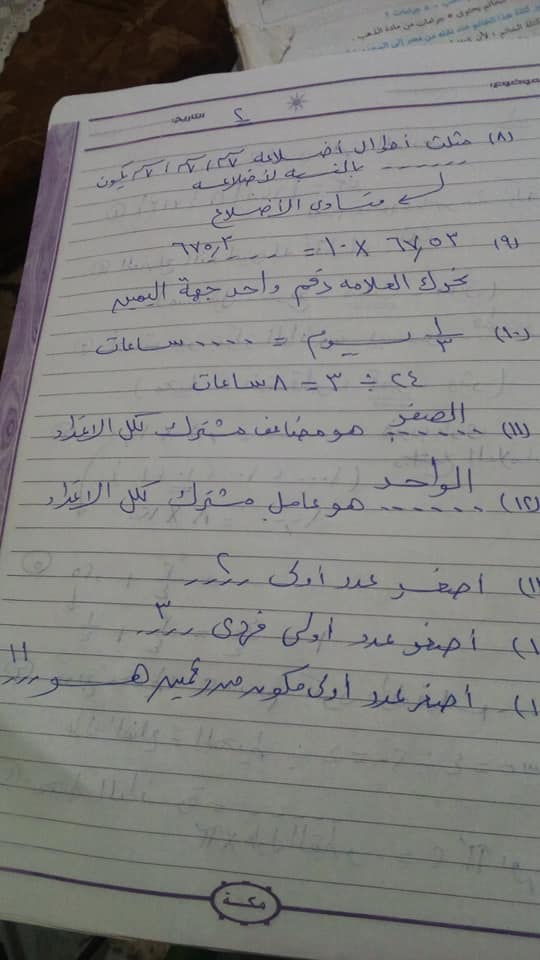 ٢
(٨) مثلث أطوال أضلاعه ٧سم ، ٧سم ، ٧سم يكون
........ بالنسبة لأضلاعه
متساوى الأضلاع
(٩) ٦٧,٥٣ × ١٠ = ٦٧٥,٣
نحرك العلامه رقم واحد جهة اليمين
(١٠) ١/٣ يوم = ..... ساعات
٢٤ ÷ ٣ = ٨ ساعات
(١١) الصفر هو مضاعف مشترك لكل الاعداد
(١٢) الواحد هو عامل مشترك لكل الاعداد
أصغر عدد أولى ٢
أصغر عدد أولى فردى ٣
أصغر عدد أولى مكون من رقمين هو ١١
مكة